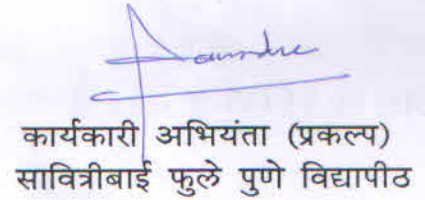 कार्यकारी अभियंता (प्रकल्प)
सावित्रीबाई फुले पुणे विद्यापीठ